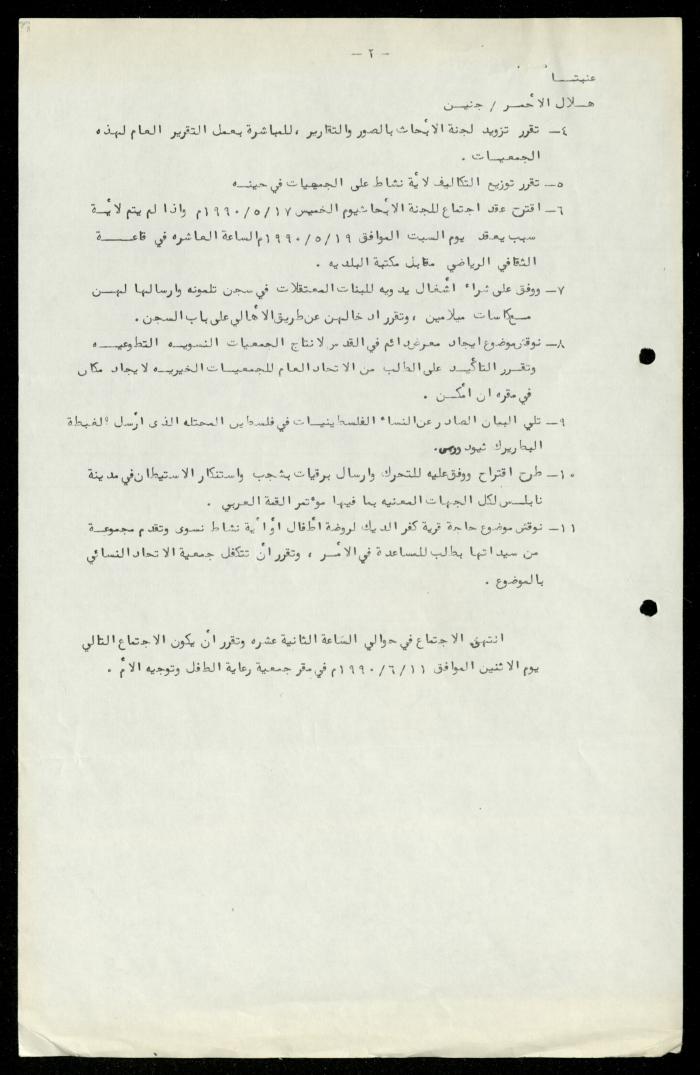 - ٢ -
عنبتـا
هـلال الاحمـر / جنيـن
٤- تقرر تزويد لجنة الأبحاث بالصور والتقارير ، للمباشرة بعمل التقرير العام لهذه
الجمعيـات .
٥- تقرر توزيع التكاليف لأية نشاط على الجمعيات في حينـه
٦- اقترح عقد اجتماع للجنة الأبحاث يوم الخميس ١٩٩٠/٥/١٧م واذا لم يتم لأيـة
سبب يعقد يوم السبت الموافق ١٩٩٠/٥/١٩م الساعة العاشره في قاعـة
الثقافي الرياضي مقابل مكتبة البلديه .
٧- ووفق على شراء أشغال يدويه للبنات المعتقلات في سجن تلموند وارسالها لهـن
مـع كاسات ميلامين ، وتقرر ادخالهن عن طريق الأهالي على باب السجن .
٨- نوقش موضوع ايجاد معرض دائم في القدس لانتاج الجمعيات النسويـه التطوعيـه
وتقـرر التأكيـد على الطلب من الاتحاد العام للجمعيـات الخيريـه لايجاد مكان
في مقره ان امكـن .
٩- تلي البيان الصادر عن النساء الفلسطينيات في فلسطين المحتله الذى ارسل لغبطة
البطاريرك ثيودوروس.
١٠- طرح اقتراح ووفق عليه للتحرك وارسال برقيات بشجب واستنكار الاستيطان في مدينة
نابلـس لكل الجهات المعنيه بما فيها مؤتمر القمة العربي .
١١- نوقش موضوع حاجة قرية كفر الديك لروضة أطفال أو أية نشاط نسوى وتقدم مجموعـة
من سيداتها بطلب للمساعدة في الأمـر ، وتقرر أن تتكفل جمعية الاتحاد النسائي
بالموضوع .
انتهى الاجتماع في حوالي الساعة الثانية عشره وتقرر أن يكون الاجتماع التالي
يوم الاثنين الموافق ١٩٩٠/٦/١١م في مقر جمعية رعاية الطفل وتوجيه الأم .